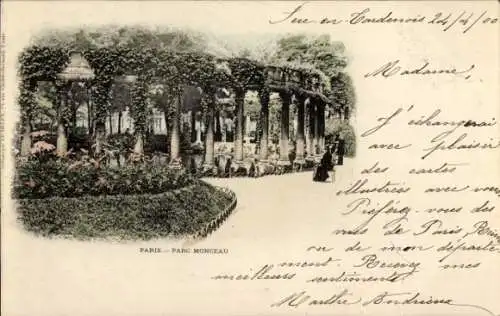 Fère en Tardenois 24/4/00
Madame,
J'échangerai
avec plaisir
des cartes
illustrées avec vous
Préférez-vous des
vues de Paris
ou de mon départe-
ment. Recevez mes
meilleurs sentiments
Marthe Andrieux
PARIS.— PARC MONCEAU